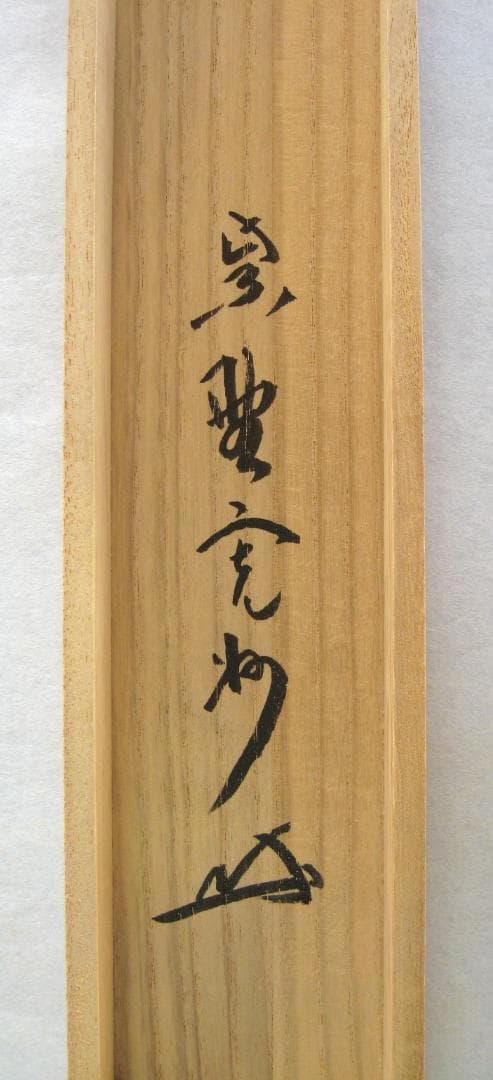 紫野寛州